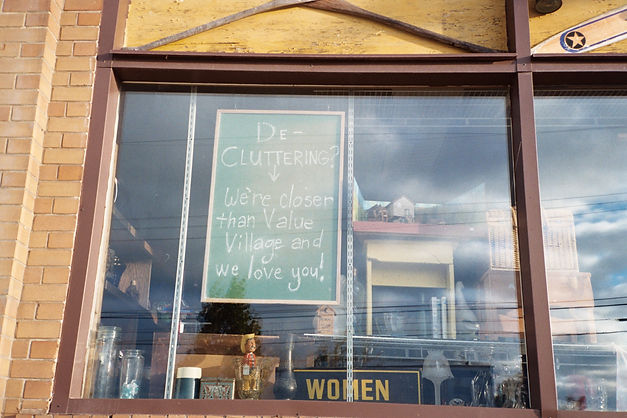 DE-
CLUTTERING?
↓
We're closer
than Value
Village and
we love you!
WOMEN